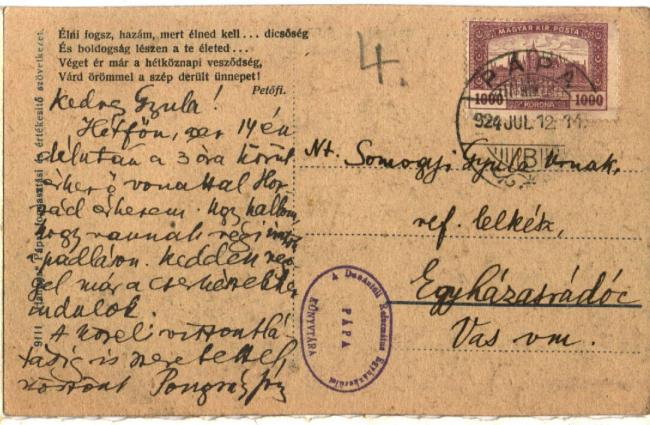 Élni fogsz, hazám, mert élned kell... dicsőség
És boldogság lészen a te életed...
Véget ér már a hétköznapi vesződség,
Várd örömmel a szép derült ünnepet!
Petőfi.
4.
MAGYAR KIR. POSTA
1000 KORONA 1000
PÁPA
924 JUL. 12
B
Kedves Gyula!
Hétfőn, 14 én
délután a 3 óra körül
érkező vonattal
érkezem. Úgy hallom
hogy vannak régi
padláson. Kedden
már a
indulok.
A közeli viszontlá
tásig is szeretettel
köszönt Pongrácz
Nt. Somogyi Gyula Urnak,
ref. lelkész,
Egyházasrádóc
Vas vm.
A Dunántúli Református Egyházkerület
PÁPA
KÖNYVTÁRA
9111 Hangya Pápai fogyasztási és értékesítő szövetkezet.